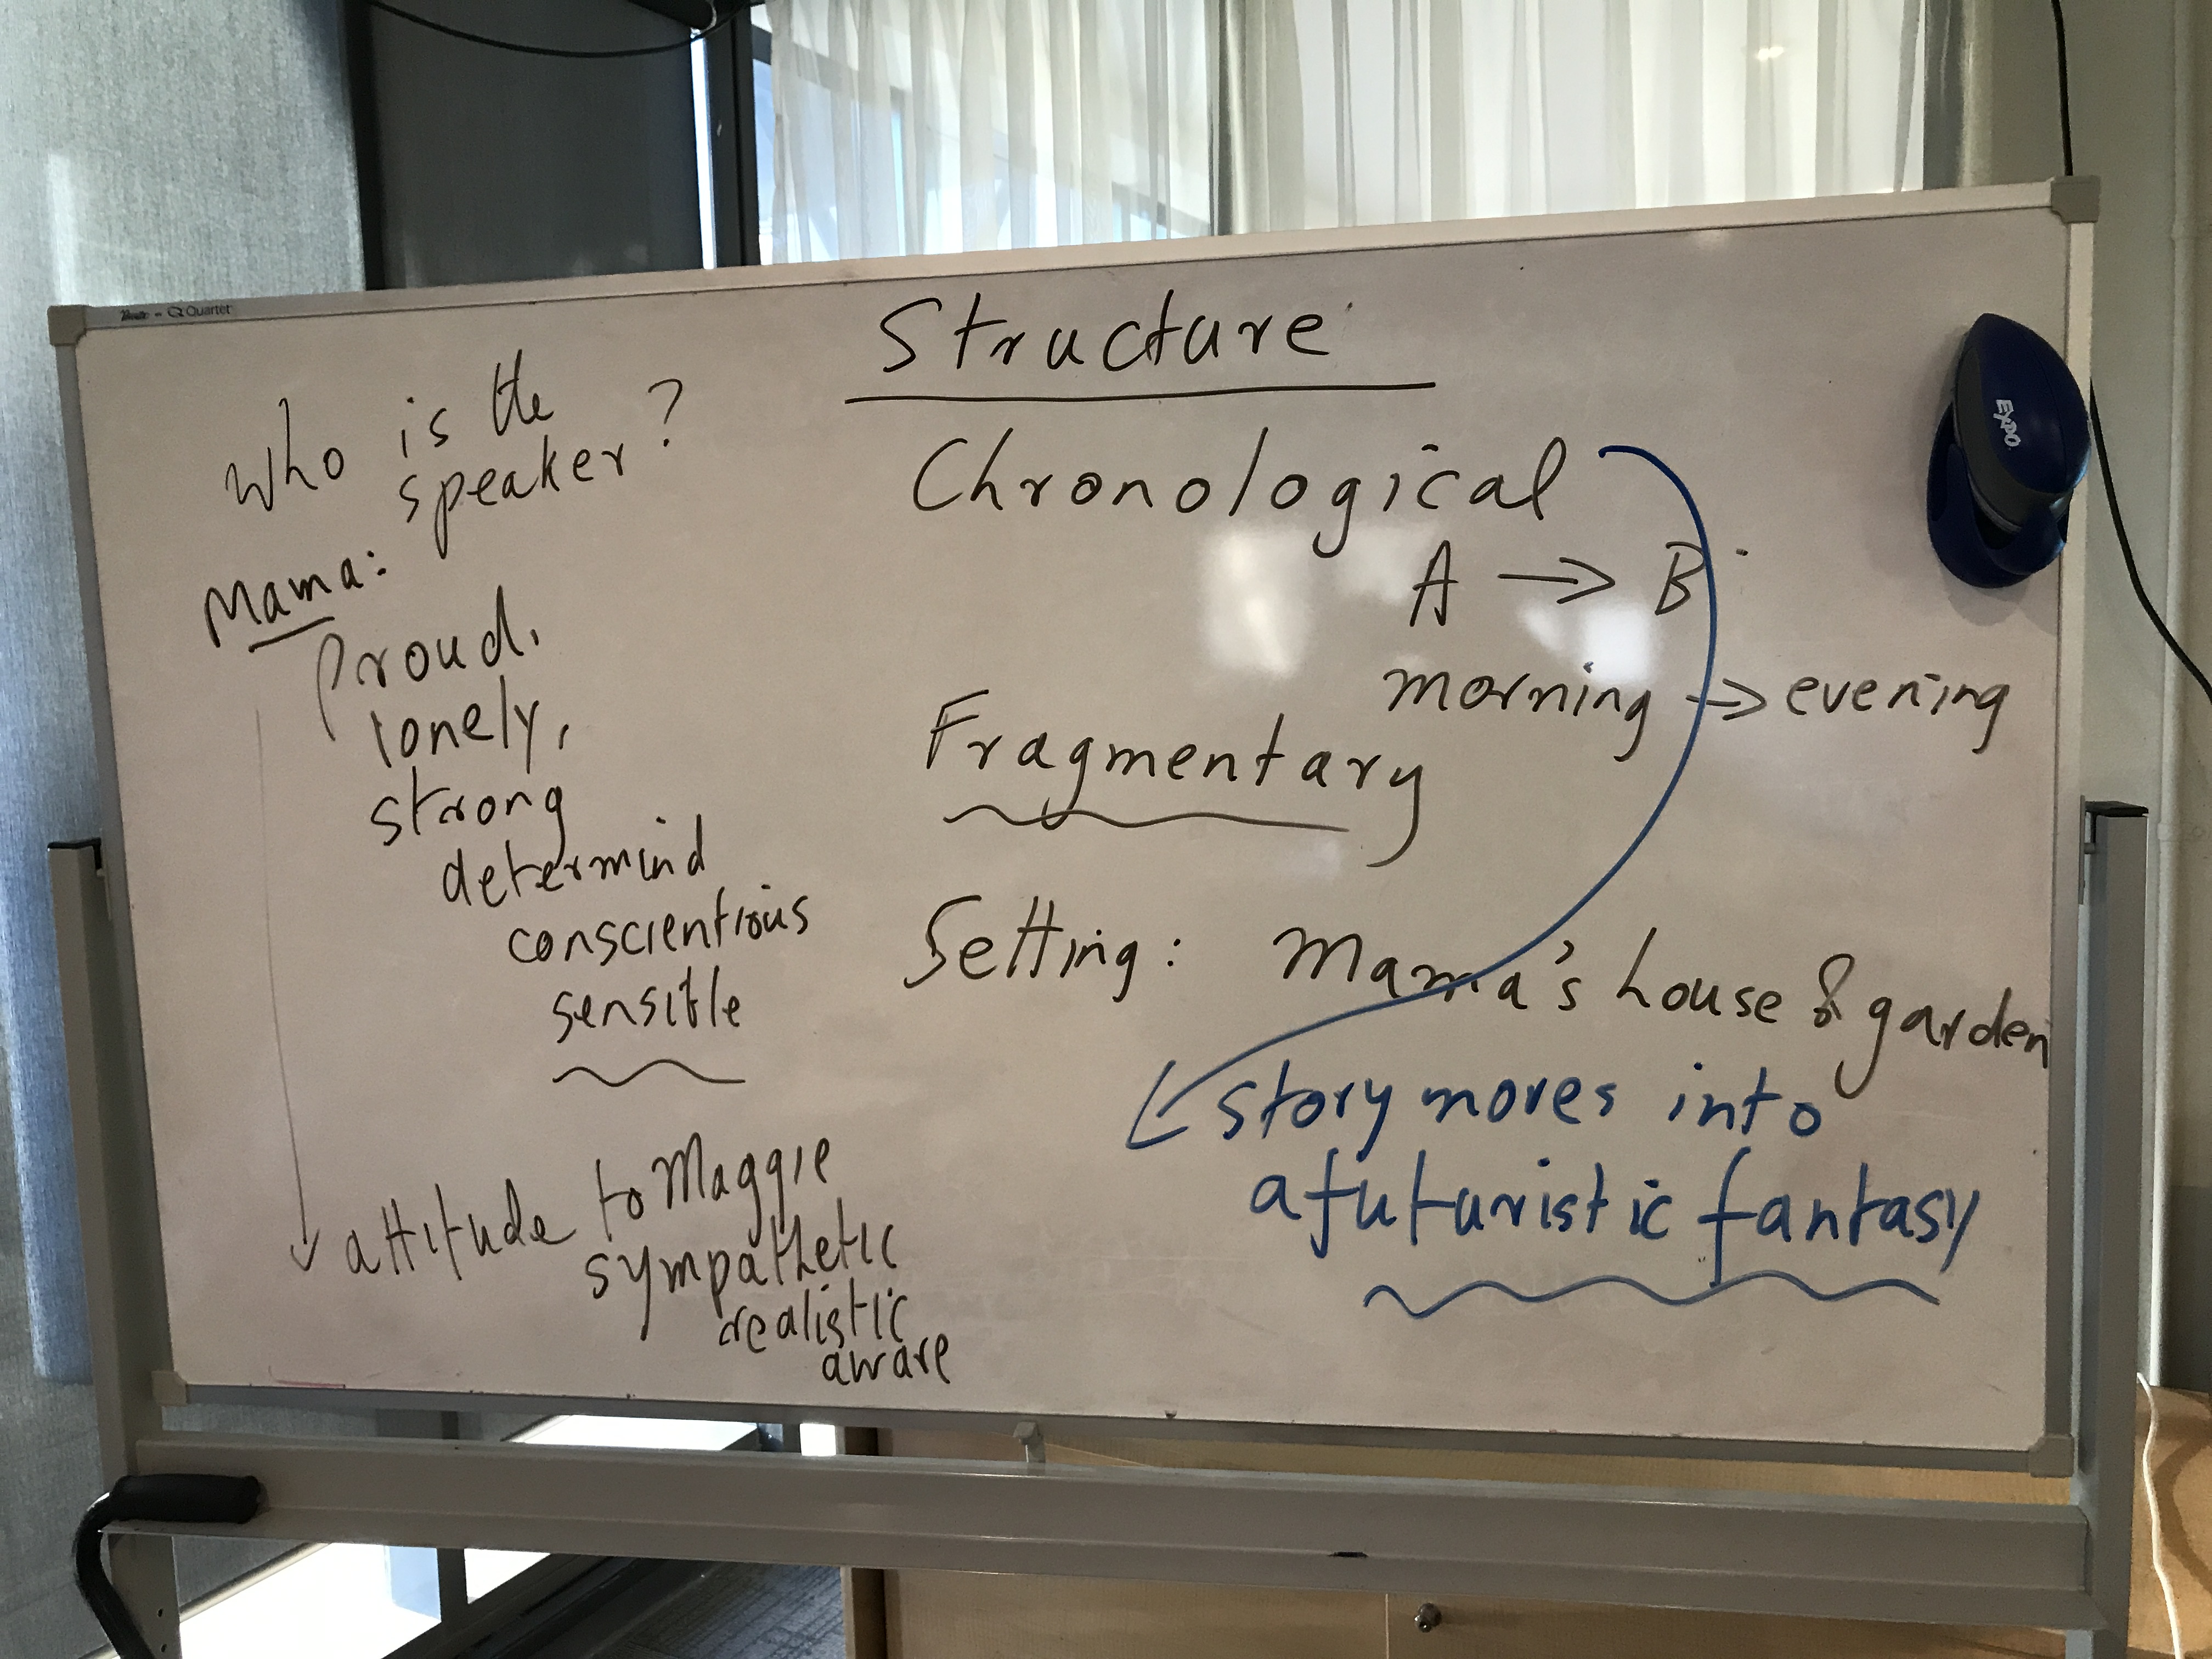 Quartet
Structure
Who is the
speaker?
Mama:
Proud,
lonely,
strong
determind
conscientious
sensible
attitude to Maggie
sympathetic
realistic
aware
Chronological
A → B
morning → evening
Fragmentary
Setting: Mama's house & garden
story moves into
a futuristic fantasy
EXPO